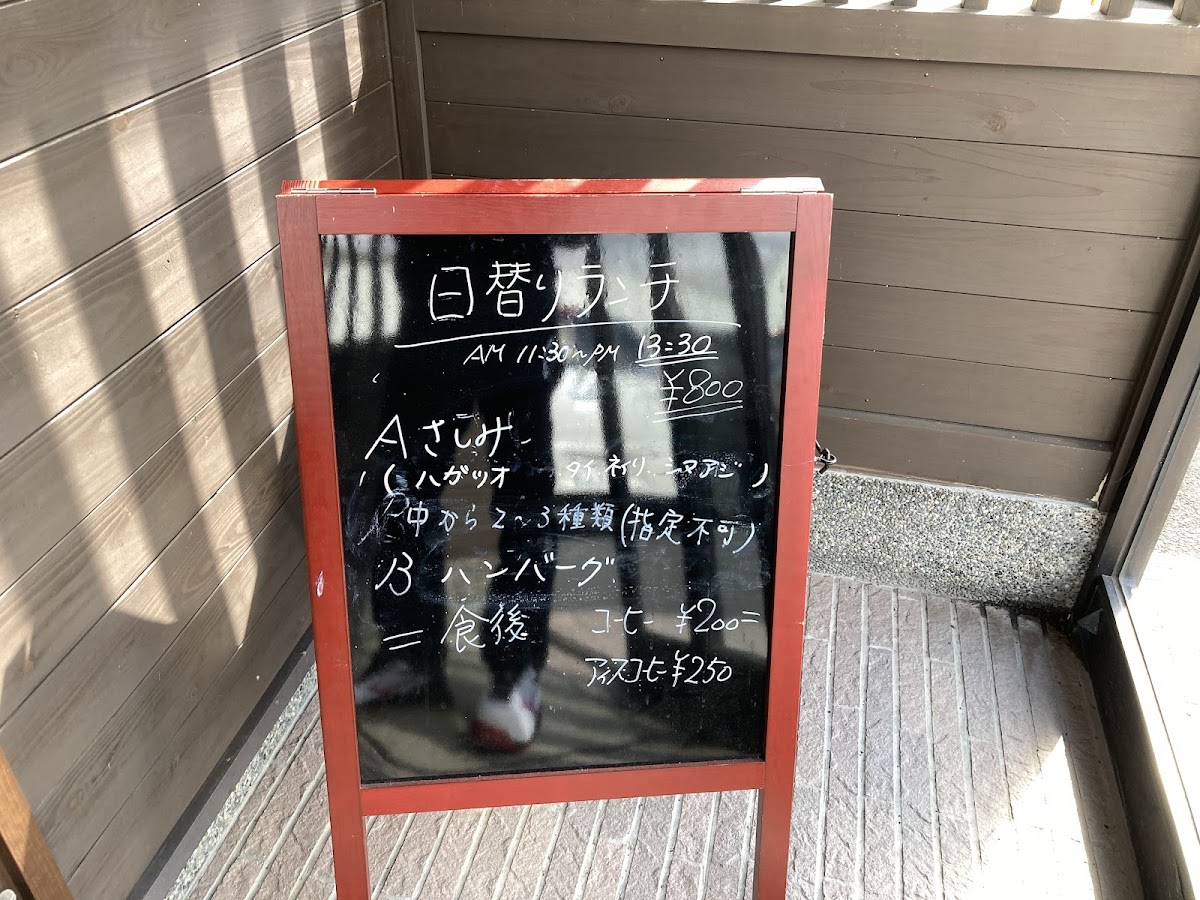 日替りランチ
AM 11:30～PM 13:30
¥800
A さしみ
(ハガツオ タイ、ネイリ、シマアジ)
中から2～3種類(指定不可)
B ハンバーグ
＝食後 コーヒー ¥200＝
アイスコーヒー ¥250